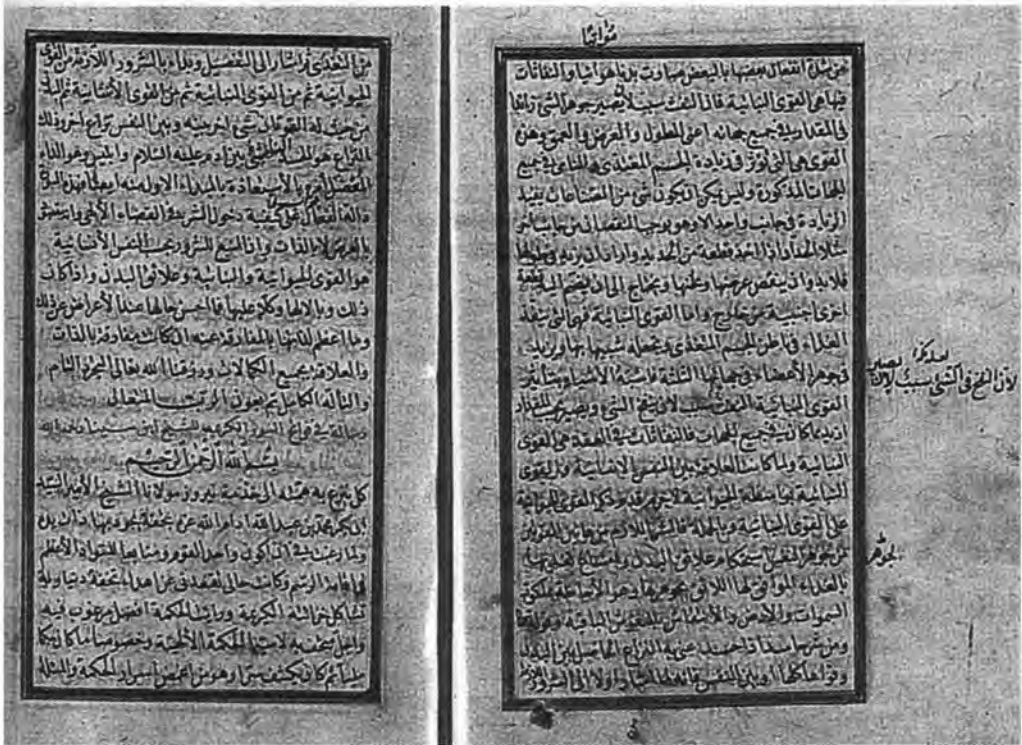 مؤانها
عن شدة انفعال بعضها بالبعض صارت بدنها هواشيا والنفاثات
فيها هي القوى النباتية فان النفث سبب لان يصير جوهر الشئ زائدا
في المقدار في جميع جهاته اعني الطول والعرض والعمق وهذه
القوى هي التي تؤثر في زيادة الجسم المغتذي والنامي في جميع
الجهات المذكورة وليس يمكن ان يكون شئ من الصناعات يفيد
الزيادة في جانب واحد الا وهو يوجب النقصان من جانب آخر
مثلا الحداد اذا اخذ قطعة من الحديد واراد ان يزيد في طولها
فلا بد وان ينقص عرضها وعمقها ويحتاج الى ان يضم اليه قطعة
اخرى اجنبية من خارج واما القوى النباتية فهي التي تنفذ
الغذاء في باطن الجسم المغتذي وتجعله شبيها بها وتزيد
في جوهر الأعضاء في جهاتها الثلثة فاشبه الأشياء بتأثير
القوى النباتية النفث سبب لان ينفخ الشئ ويصير بحسب المقدار
ازيد مما كان في جميع الجهات فالنفاثات في العقد هي القوى
النباتية ولما كانت العلاقة بين النفس الانسانية والقوى
النباتية بواسطة الحيوانية لا جرم قدم ذكر القوى الحيوانية
على القوى النباتية وبالجملة فالشر اللازم من هاتين القوتين
في جوهر النفس استحكام علائق البدن وامتناع تغذيها
بالغذاء الموافق لها اللائق بجوهرها وهو الاحاطة بملكوت
السموات والأرض والأنتقاش بالنقوش الباقية وقوله تعالى
ومن شر حاسد اذا حسد عنى به النزاع الحاصل بين البدن
وقواها كلها وبين النفس فانه اشار اولا الى الشرور
لأن النفخ في الشئ سبب لان يصير
الجوهر
من التعدي ثم اشار الى التفصيل وبدأ بالشرور اللازمة من القوى
الحيوانية ثم من القوى النباتية ثم من القوى الأنسانية ثم البدن
من حيث له القوتان شئ آخر بينه وبين النفس نزاع آخر وذلك
النزاع هو الحسد المنتشي بين آدم عليه السلام وابليس وهو الداء
المعضل أمره بالأستعاذة بالمبدء الأول منه ايضا فهذه السورة
دالة على كيفية دخول الشر في القضاء الألهي وانه مقضي
بالعرض لا بالذات وان المنبع للشرور بحسب النفس الأنسانية
هو القوى الحيوانية والنباتية وعلائق البدن واذا كان
ذلك وبالا لها وكلا عليها فما احسن حالها عند الأعراض عن ذلك
وما اعظم لذتها بالمفارقة عنه ان كانت مفارقة بالذات
والعلاقة بجميع الكمالات ورزقنا الله تعالى التجرد التام
والتأله الكامل تم بعون الرب المتعالى
رسالة في فواتح السور الكريمة للشيخ ابن سينا رحمه الله
بسم الله الرحمن الرحيم
كل ينزع به همته الى خدمة نيروز مولانا الشيخ الأمير السيد
ابى بكر محمد بن عبد الله ادام الله عزه بتحفة يجود بها ذات يده
ولما رغبت في ان اكون واحد القوم ومتابعا للسواد الأعظم
في اقامة الرسم وكانت حالى تقعد بى عن اهداء تحفة دنياوية
تشاكل خزانته الكريمة ورأيت الحكمة افضل مرغوب فيه
واجل متحف به لا سيما الحكمة الألهية وخصوصا ما كان
مليا ثم كان يكشف سرا وهو من اغمض اسرار الحكمة والملة